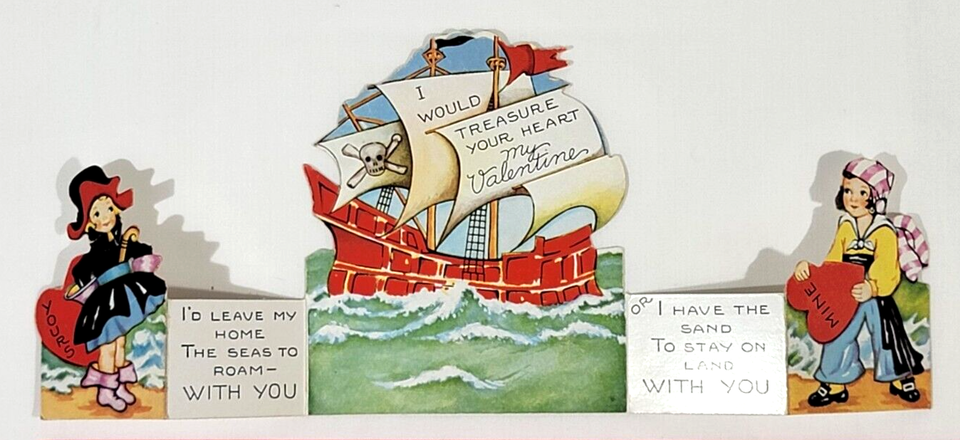 I
WOULD
TREASURE
YOUR HEART
my
Valentine
YOURS
I'D LEAVE MY
HOME
THE SEAS TO
ROAM—
WITH YOU
OR I HAVE THE
SAND
TO STAY ON
LAND
WITH YOU
MINE